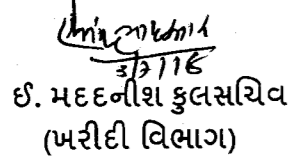 3/7/18
ઈ. મદદનીશ કુલસચિવ
(ખરીદી વિભાગ)